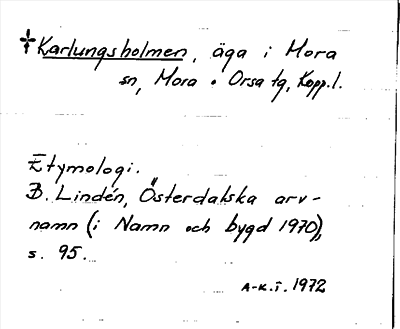 †Karlungsholmen, äga i Mora
sn, Mora o Orsa tg, Kopp.l.
Etymologi.
B. Lindén, Österdalska arv-
namn (i Namn och bygd 1970),
s. 95.
A-K.I. 1972